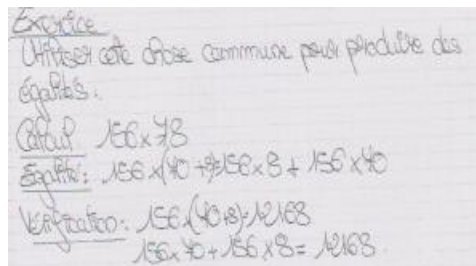 Exercice
Utiliser cette chose commune pour produire des
égalités.
Calcul 156 x 78
Égalité: 156 x (70 + 8) = 156 x 8 + 156 x 70
Vérification: 156 x (70+8) = 12168
156 x 70 + 156 x 8 = 12168